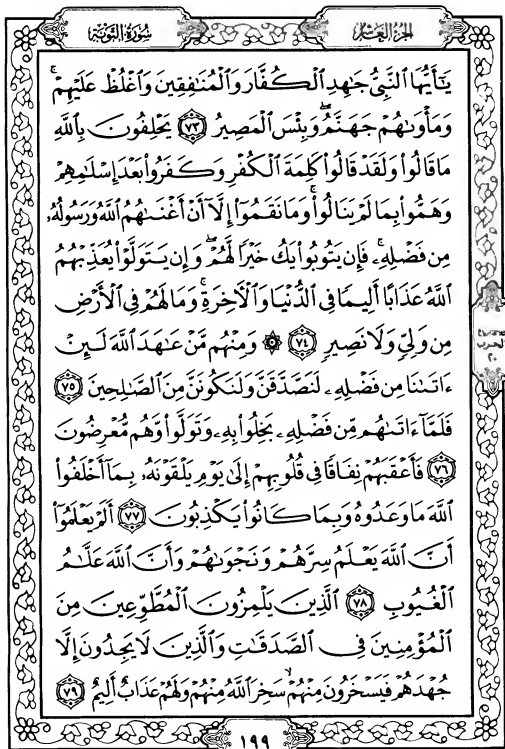 سُورَةُ التَّوْبَةِ
الجُزْءُ العَاشِرُ
يَٰٓأَيُّهَا ٱلنَّبِىُّ جَٰهِدِ ٱلْكُفَّارَ وَٱلْمُنَٰفِقِينَ وَٱغْلُظْ عَلَيْهِمْ ۚ
وَمَأْوَىٰهُمْ جَهَنَّمُ ۖ وَبِئْسَ ٱلْمَصِيرُ ۝٧٣ يَحْلِفُونَ بِٱللَّهِ
مَا قَالُوا۟ وَلَقَدْ قَالُوا۟ كَلِمَةَ ٱلْكُفْرِ وَكَفَرُوا۟ بَعْدَ إِسْلَٰمِهِمْ
وَهَمُّوا۟ بِمَا لَمْ يَنَالُوا۟ ۚ وَمَا نَقَمُوٓا۟ إِلَّآ أَنْ أَغْنَىٰهُمُ ٱللَّهُ وَرَسُولُهُۥ
مِن فَضْلِهِۦ ۚ فَإِن يَتُوبُوا۟ يَكُ خَيْرًا لَّهُمْ ۖ وَإِن يَتَوَلَّوْا۟ يُعَذِّبْهُمُ
ٱللَّهُ عَذَابًا أَلِيمًا فِى ٱلدُّنْيَا وَٱلْءَاخِرَةِ ۚ وَمَا لَهُمْ فِى ٱلْأَرْضِ
مِن وَلِىٍّ وَلَا نَصِيرٍ ۝٧٤ ۞ وَمِنْهُم مَّنْ عَٰهَدَ ٱللَّهَ لَئِنْ
ءَاتَىٰنَا مِن فَضْلِهِۦ لَنَصَّدَّقَنَّ وَلَنَكُونَنَّ مِنَ ٱلصَّٰلِحِينَ ۝٧٥
فَلَمَّآ ءَاتَىٰهُم مِّن فَضْلِهِۦ بَخِلُوا۟ بِهِۦ وَتَوَلَّوا۟ وَّهُم مُّعْرِضُونَ
۝٧٦ فَأَعْقَبَهُمْ نِفَاقًا فِى قُلُوبِهِمْ إِلَىٰ يَوْمِ يَلْقَوْنَهُۥ بِمَآ أَخْلَفُوا۟
ٱللَّهَ مَا وَعَدُوهُ وَبِمَا كَانُوا۟ يَكْذِبُونَ ۝٧٧ أَلَمْ يَعْلَمُوٓا۟
أَنَّ ٱللَّهَ يَعْلَمُ سِرَّهُمْ وَنَجْوَىٰهُمْ وَأَنَّ ٱللَّهَ عَلَّٰمُ
ٱلْغُيُوبِ ۝٧٨ ٱلَّذِينَ يَلْمِزُونَ ٱلْمُطَّوِّعِينَ مِنَ
ٱلْمُؤْمِنِينَ فِى ٱلصَّدَقَٰتِ وَٱلَّذِينَ لَا يَجِدُونَ إِلَّا
جُهْدَهُمْ فَيَسْخَرُونَ مِنْهُمْ ۙ سَخِرَ ٱللَّهُ مِنْهُمْ وَلَهُمْ عَذَابٌ أَلِيمٌ ۝٧٩
١٩٩